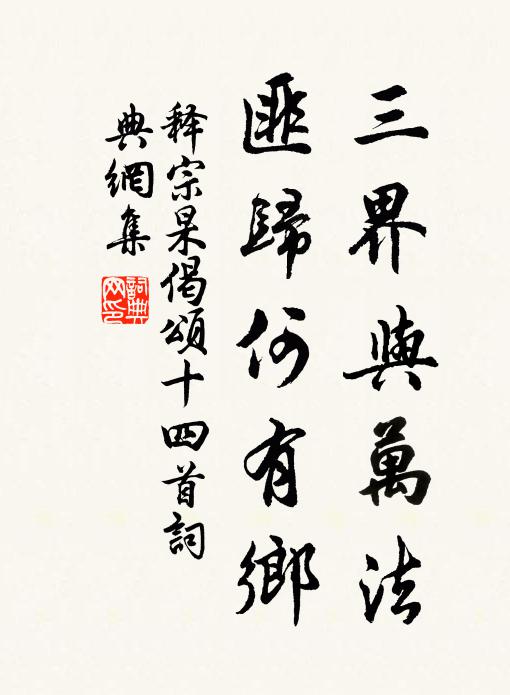 三界與萬法
匪歸何有鄉
释宗杲偈頌十四首詞
典網集
詞典网印